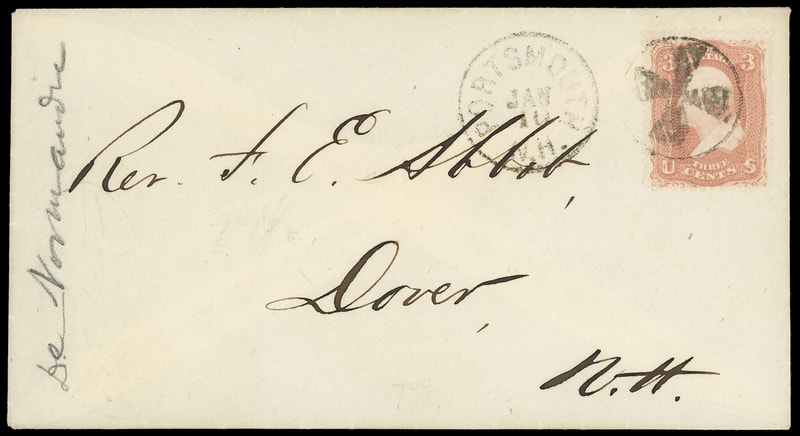 De Normandie
PORTSMOUTH
JAN
10
N.H.
3 POSTAGE 3
U THREE CENTS S
Rev. F. E. Abbot,
Dover,
N.H.